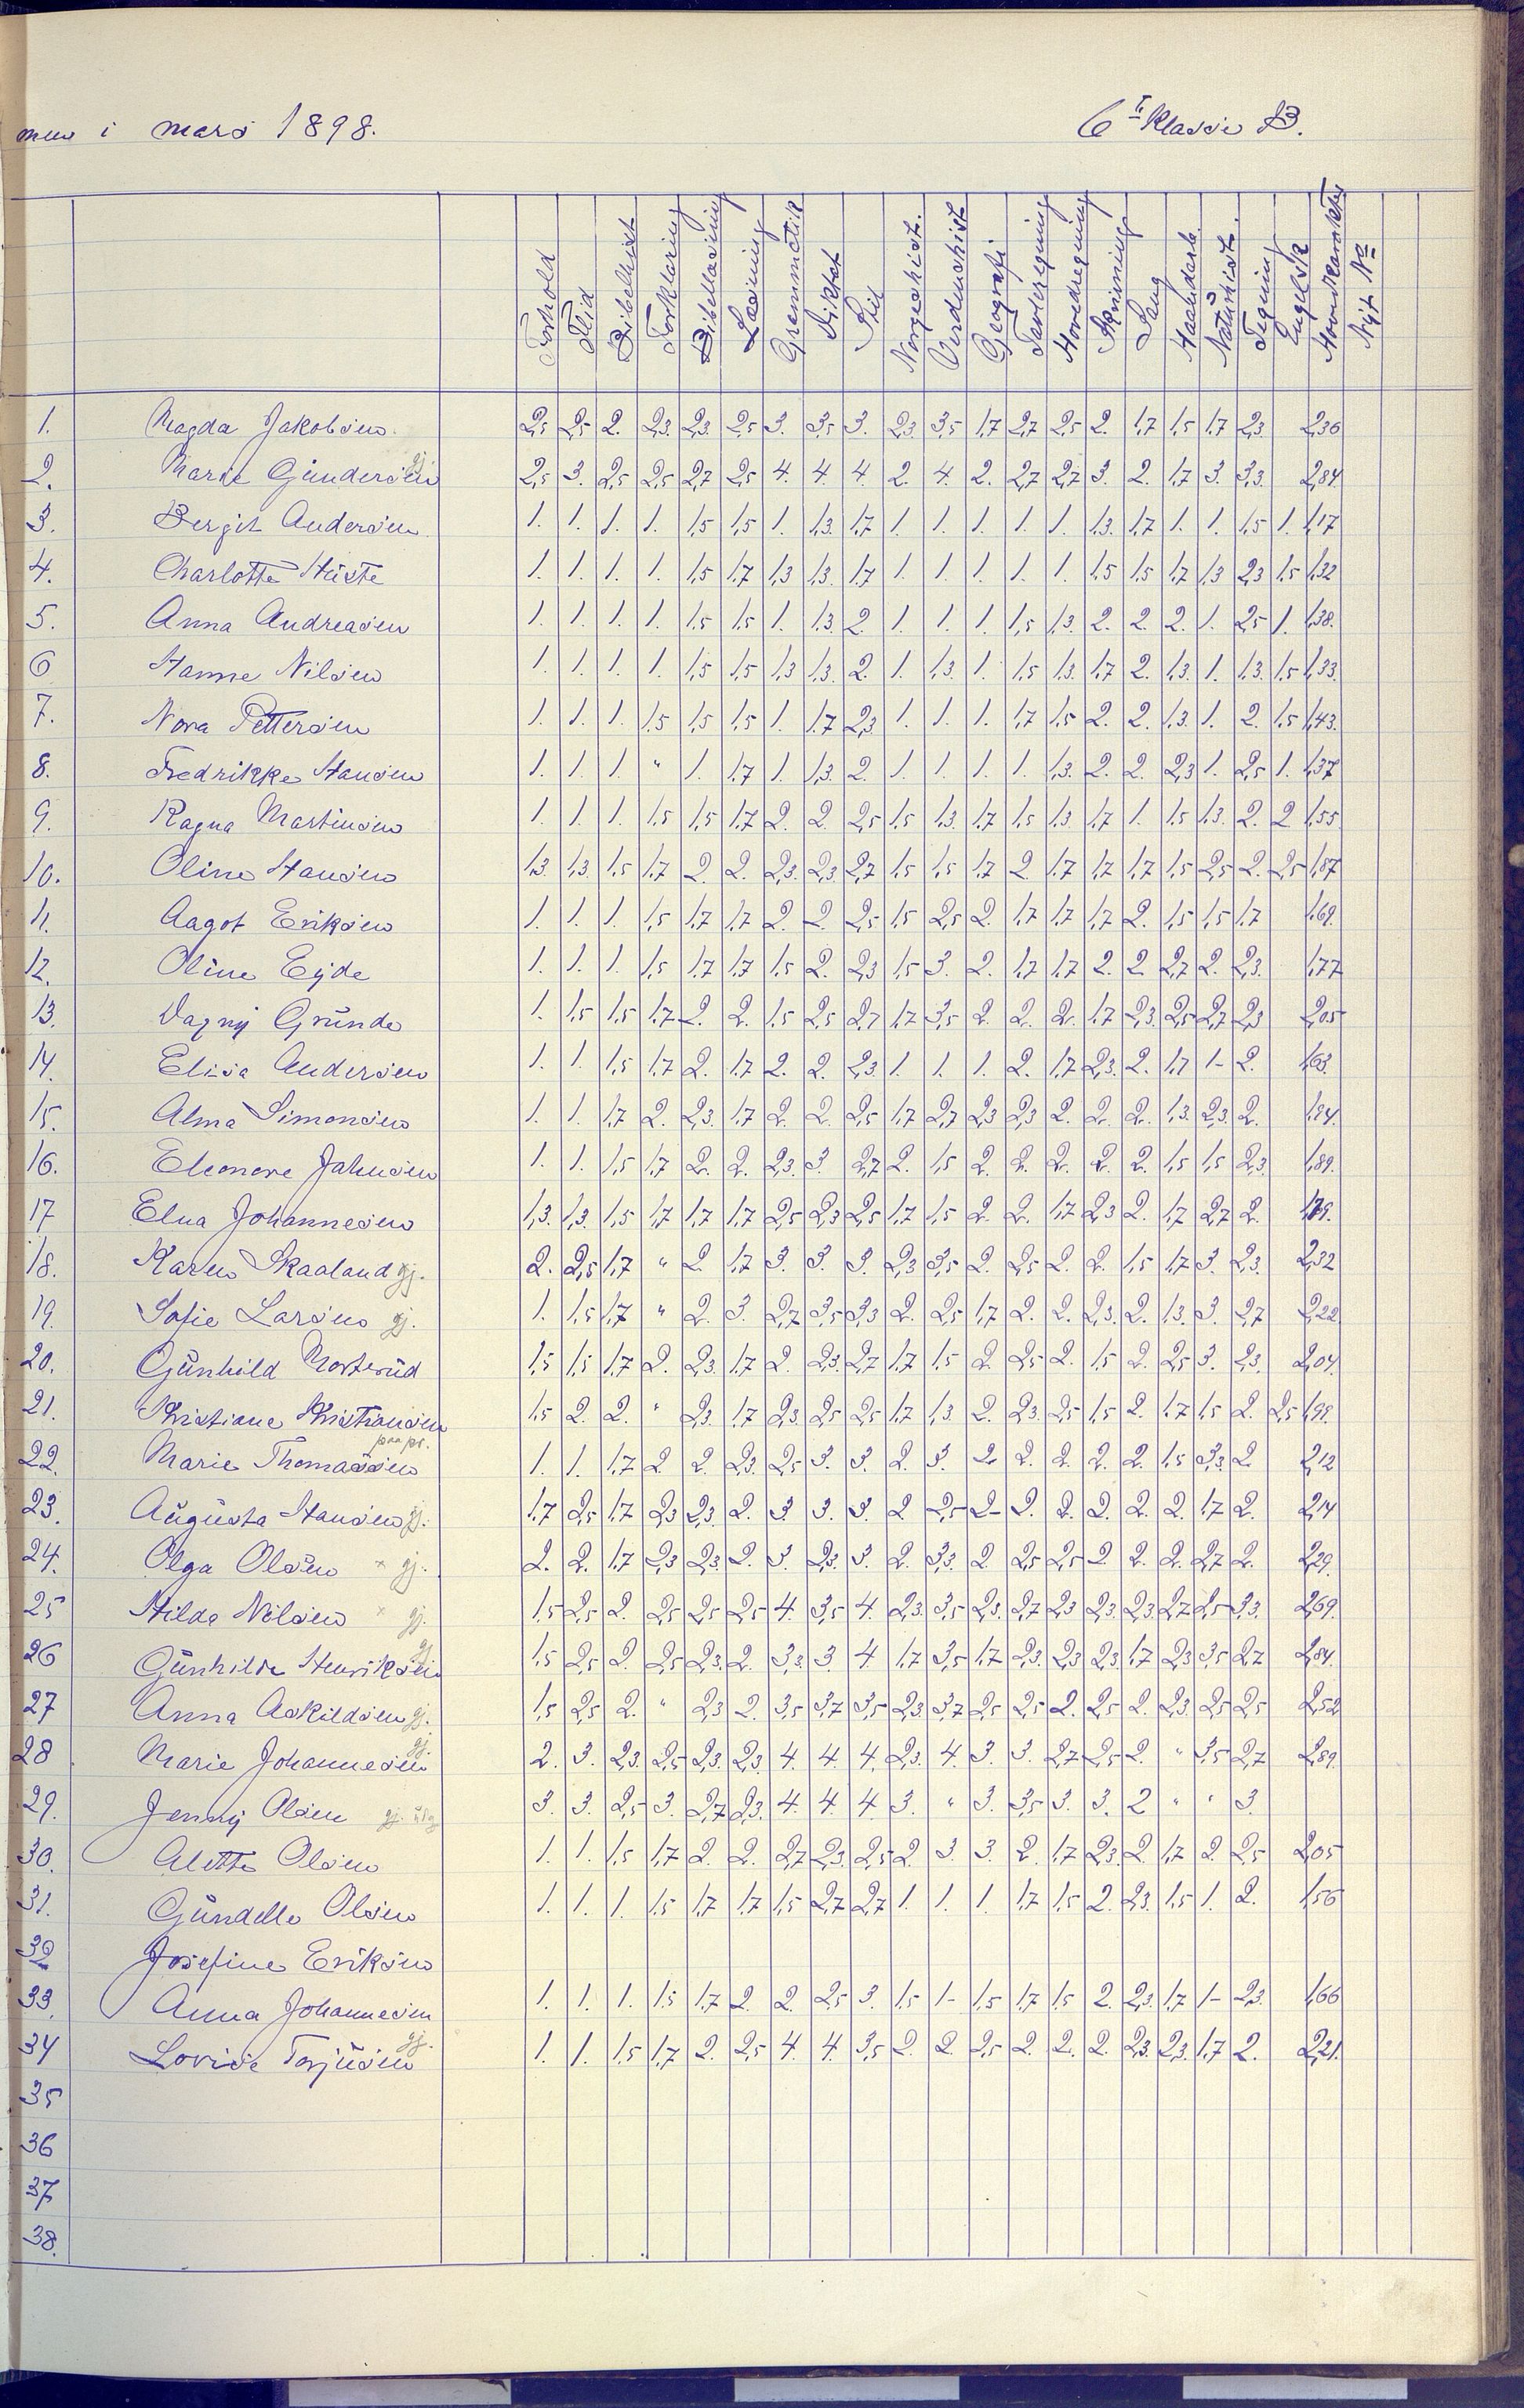 i mars 1898. 6te Klasse B.
Forhold Flid Bibelhist Forklaring Bibellæsning Læsning Grammatik Diktat Stil Norgeshist. Verdenshist Geografi Tavleregning Hovedregning Skrivning Sang Haandarb. Naturhist. Tegning Engelsk Hovedkarakter Nyt No
1. Magda Jakobsen 2,5 2,5 2. 2,3 2,3 2,5 3. 3,5 3. 2,3 3,5 1,7 2,7 2,5 2. 1,7 1,5 1,7 2,3 2,36
2. Marie Gundersen gj. 2,5 3. 2,5 2,5 2,7 2,5 4. 4. 4. 2. 4. 2. 2,7 2,7 3. 2. 1,7 3. 3,3. 2,84
3. Bergit Andersen 1. 1. 1. 1. 1,5 1,5 1. 1,3. 1,7 1. 1. 1. 1. 1. 1,3. 1,7 1. 1. 1,5 1. 1,17
4. Charlotte Høste 1. 1. 1. 1. 1,5 1,7 1,3 1,3. 1,7 1. 1. 1. 1. 1. 1,5 1,5 1,7 1,3 2,3 1,5 1,32
5. Anna Andreasen 1. 1. 1. 1. 1,5 1,5 1. 1,3. 2. 1. 1. 1. 1,5 1,3. 2. 2. 2. 1. 2,5 1. 1,38.
6 Hanne Nilsen 1. 1. 1. 1. 1,5 1,5 1,3 1,3. 2. 1. 1,3. 1. 1,5 1,3. 1,7 2. 1,3. 1. 1,3. 1,5 1,33.
7. Nora Pettersen 1. 1. 1. 1,5 1,5 1,5 1. 1,7 2,3 1. 1. 1. 1,7 1,5 2. 2. 1,3. 1. 2. 1,5 1,43.
8. Fredrikke Hansen 1. 1. 1. " 1. 1,7 1. 1,3. 2. 1. 1. 1. 1. 1,3. 2. 2. 2,3 1. 2,5 1. 1,37
9. Ragna Martinsen 1. 1. 1. 1,5 1,5 1,7 2. 2. 2,5 1,5 1,3. 1,7 1,5 1,3. 1,7 1. 1,5 1,3. 2. 2 1,55
10. Oline Hansen 1,3. 1,3. 1,5 1,7 2. 2. 2,3. 2,3. 2,7 1,5 1,5 1,7 2 1,7 1,7 1,7 1,5 2,5 2. 2,5 1,87
11. Aagot Eriksen 1. 1. 1. 1,5 1,7 1,7 2. 2. 2,5 1,5 2,5 2. 1,7 1,7 1,7 2. 1,5 1,5 1,7 1,69.
12. Oline Eyde 1. 1. 1. 1,5 1,7 1,7 1,5 2. 2,3 1,5 3. 2. 1,7 1,7 2. 2 2,7 2. 2,3. 1,77
13. Dagny Grunde 1. 1,5 1,5 1,7 2. 2. 1,5 2,5 2,7 1,7 3,5 2. 2. 2. 1,7 2,3. 2,5 2,7 2,3 2,05
14. Elisa Andersen 1. 1. 1,5 1,7 2. 1,7 2. 2. 2,3 1. 1. 1. 2. 1,7 2,3. 2. 1,7 1- 2. 1,63.
15. Alma Simonsen 1. 1. 1,7 2. 2,3. 1,7 2. 2. 2,5 1,7 2,7 2,3 2,3 2. 2. 2. 1,3. 2,3. 2.
16. Eleonore Jahnsen 1. 1. 1,5 1,7 2. 2. 2,3. 3. 2,7 2. 1,5 2. 2. 2. 2. 2. 1,5 1,5 2,3. 1,89.
17 Elna Johannesen 1,3. 1,3. 1,5 1,7 1,7 1,7 2,5 2,3 2,5 1,7 1,5 2. 2. 1,7 2,3 2. 1,7 2,7 2.
18. Karen Skaaland gj. 2. 2,5 1,7 " 2 1,7 3. 3. 3. 2,3 3,5 2. 2,5 2. 2. 1,5 1,7 3. 2,3. 2,32
19. Sofie Larsen gj. 1. 1,5 1,7 " 2. 3. 2,7 3,5 3,3 2. 2,5 1,7 2. 2. 2,3. 2. 1,3. 3. 2,7 2,22
20. Gunhild Mosterud 1,5 1,5 1,7 2. 2,3. 1,7 2. 2,3. 2,7 1,7 1,5 2. 2,5 2. 1,5 2. 2,5 3. 2,3. 2,04.
21. Kristiane Kristiansen 1,5 2. 2. " 2,3. 1,7 2,3. 2,5 2,5 1,7 1,3. 2. 2,3. 2,5 1,5 2. 1,7 1,5 2. 2,5 1,99.
22. Marie Thomassen paa pr. 1. 1. 1,7 2. 2. 2,3. 2,5 3. 3. 2. 3. 2 2. 2. 2. 2. 1,5 3,3. 2. 2,12
23. Augusta Hansen gj. 1,7 2,5 1,7 2,3 2,3. 2. 3. 3. 3. 2 2,5 2- 2. 2. 2. 2. 2. 1,7 2. 2,14
24. Olga Olsen × gj. 2. 2. 1,7 2,3 2,3. 2. 3. 2,3. 3. 2. 3,3. 2 2,5 2,5 2 2. 2. 2,7 2. 2,29.
25 Hilda Nilsen × gj. 1,5 2,5 2. 2,5 2,5 2,5 4. 3,5 4. 2,3. 3,5 2,3. 2,7 2,3 2,3. 2,3. 2,7 2,5 3,3. 2,69.
26 Gunhilde Henriksen gj. 1,5 2,5 2. 2,5 2,3. 2. 3,3. 3. 4 1,7 3,5 1,7 2,3. 2,3 2,3. 1,7 2,3 3,5 2,7
27 Anna Askildsen gj. 1,5 2,5 2. " 2,3 2. 3,5 3,7 3,5 2,3. 3,7 2,5 2,5 2. 2,5 2. 2,3. 2,5 2,5 2,52
28 Marie Johannesen gj. 2. 3. 2,3. 2,5 2,3. 2,3. 4. 4. 4. 2,3. 4. 3. 3. 2,7 2,5 2. " 3,5 2,7 2,89.
29. Jenny Olsen gj. 3. 3. 2,5 3. 2,7 2,3. 4. 4. 4 3. " 3. 3,5 3. 3. 2 " " 3.
30. Alette Olsen 1. 1. 1,5 1,7 2. 2. 2,7 2,3. 2,5 2. 3. 3. 2. 1,7 2,3. 2. 1,7 2. 2,5 2,05
31. Gundelle Olsen 1. 1. 1. 1,5 1,7 1,7 1,5 2,7 2,7 1. 1. 1. 1,7 1,5 2. 2,3. 1,5 1. 2. 1,56
32 Josefine Eriksen
33. Anna Johannesen 1. 1. 1. 1,5 1,7 2. 2. 2,5 3. 1,5 1- 1,5 1,7 1,5 2. 2,3 1,7 1- 2,3. 1,66
34 Lovise Torjusen gj. 1. 1. 1,5 1,7 2. 2,5 4. 4. 3,5 2. 2. 2,5 2. 2. 2. 2,3. 2,3. 1,7 2. 2,21.
35
36
37
38.